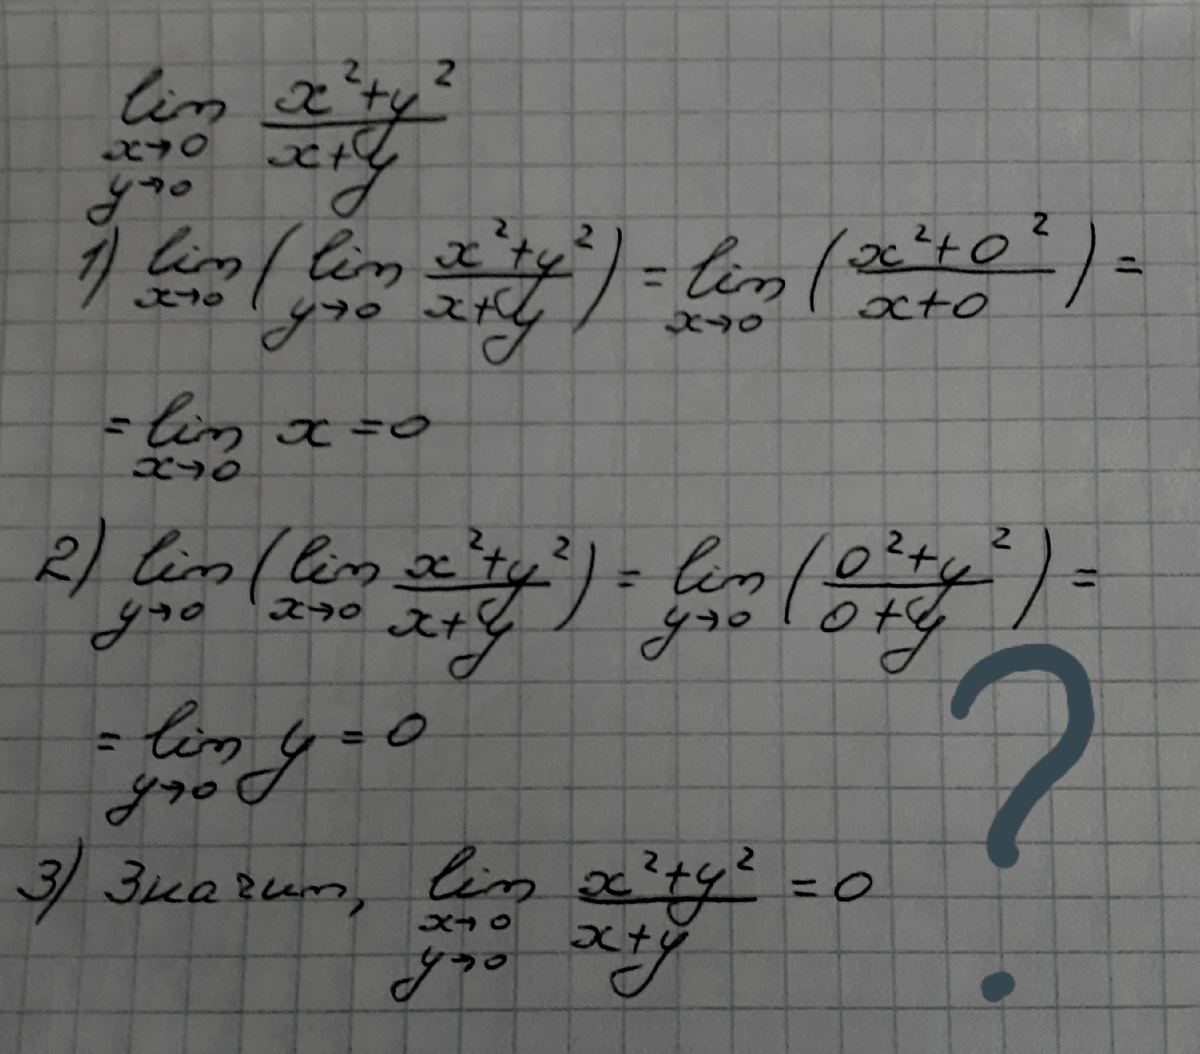 lim x→0 y→0 (x²+y²)/(x+y)
1) lim x→0 ( lim y→0 (x²+y²)/(x+y) ) = lim x→0 ( (x²+0²)/(x+0) ) =
= lim x→0 x = 0
2) lim y→0 ( lim x→0 (x²+y²)/(x+y) ) = lim y→0 ( (0²+y²)/(0+y) ) =
= lim y→0 y = 0
3) Значит, lim x→0 y→0 (x²+y²)/(x+y) = 0
?